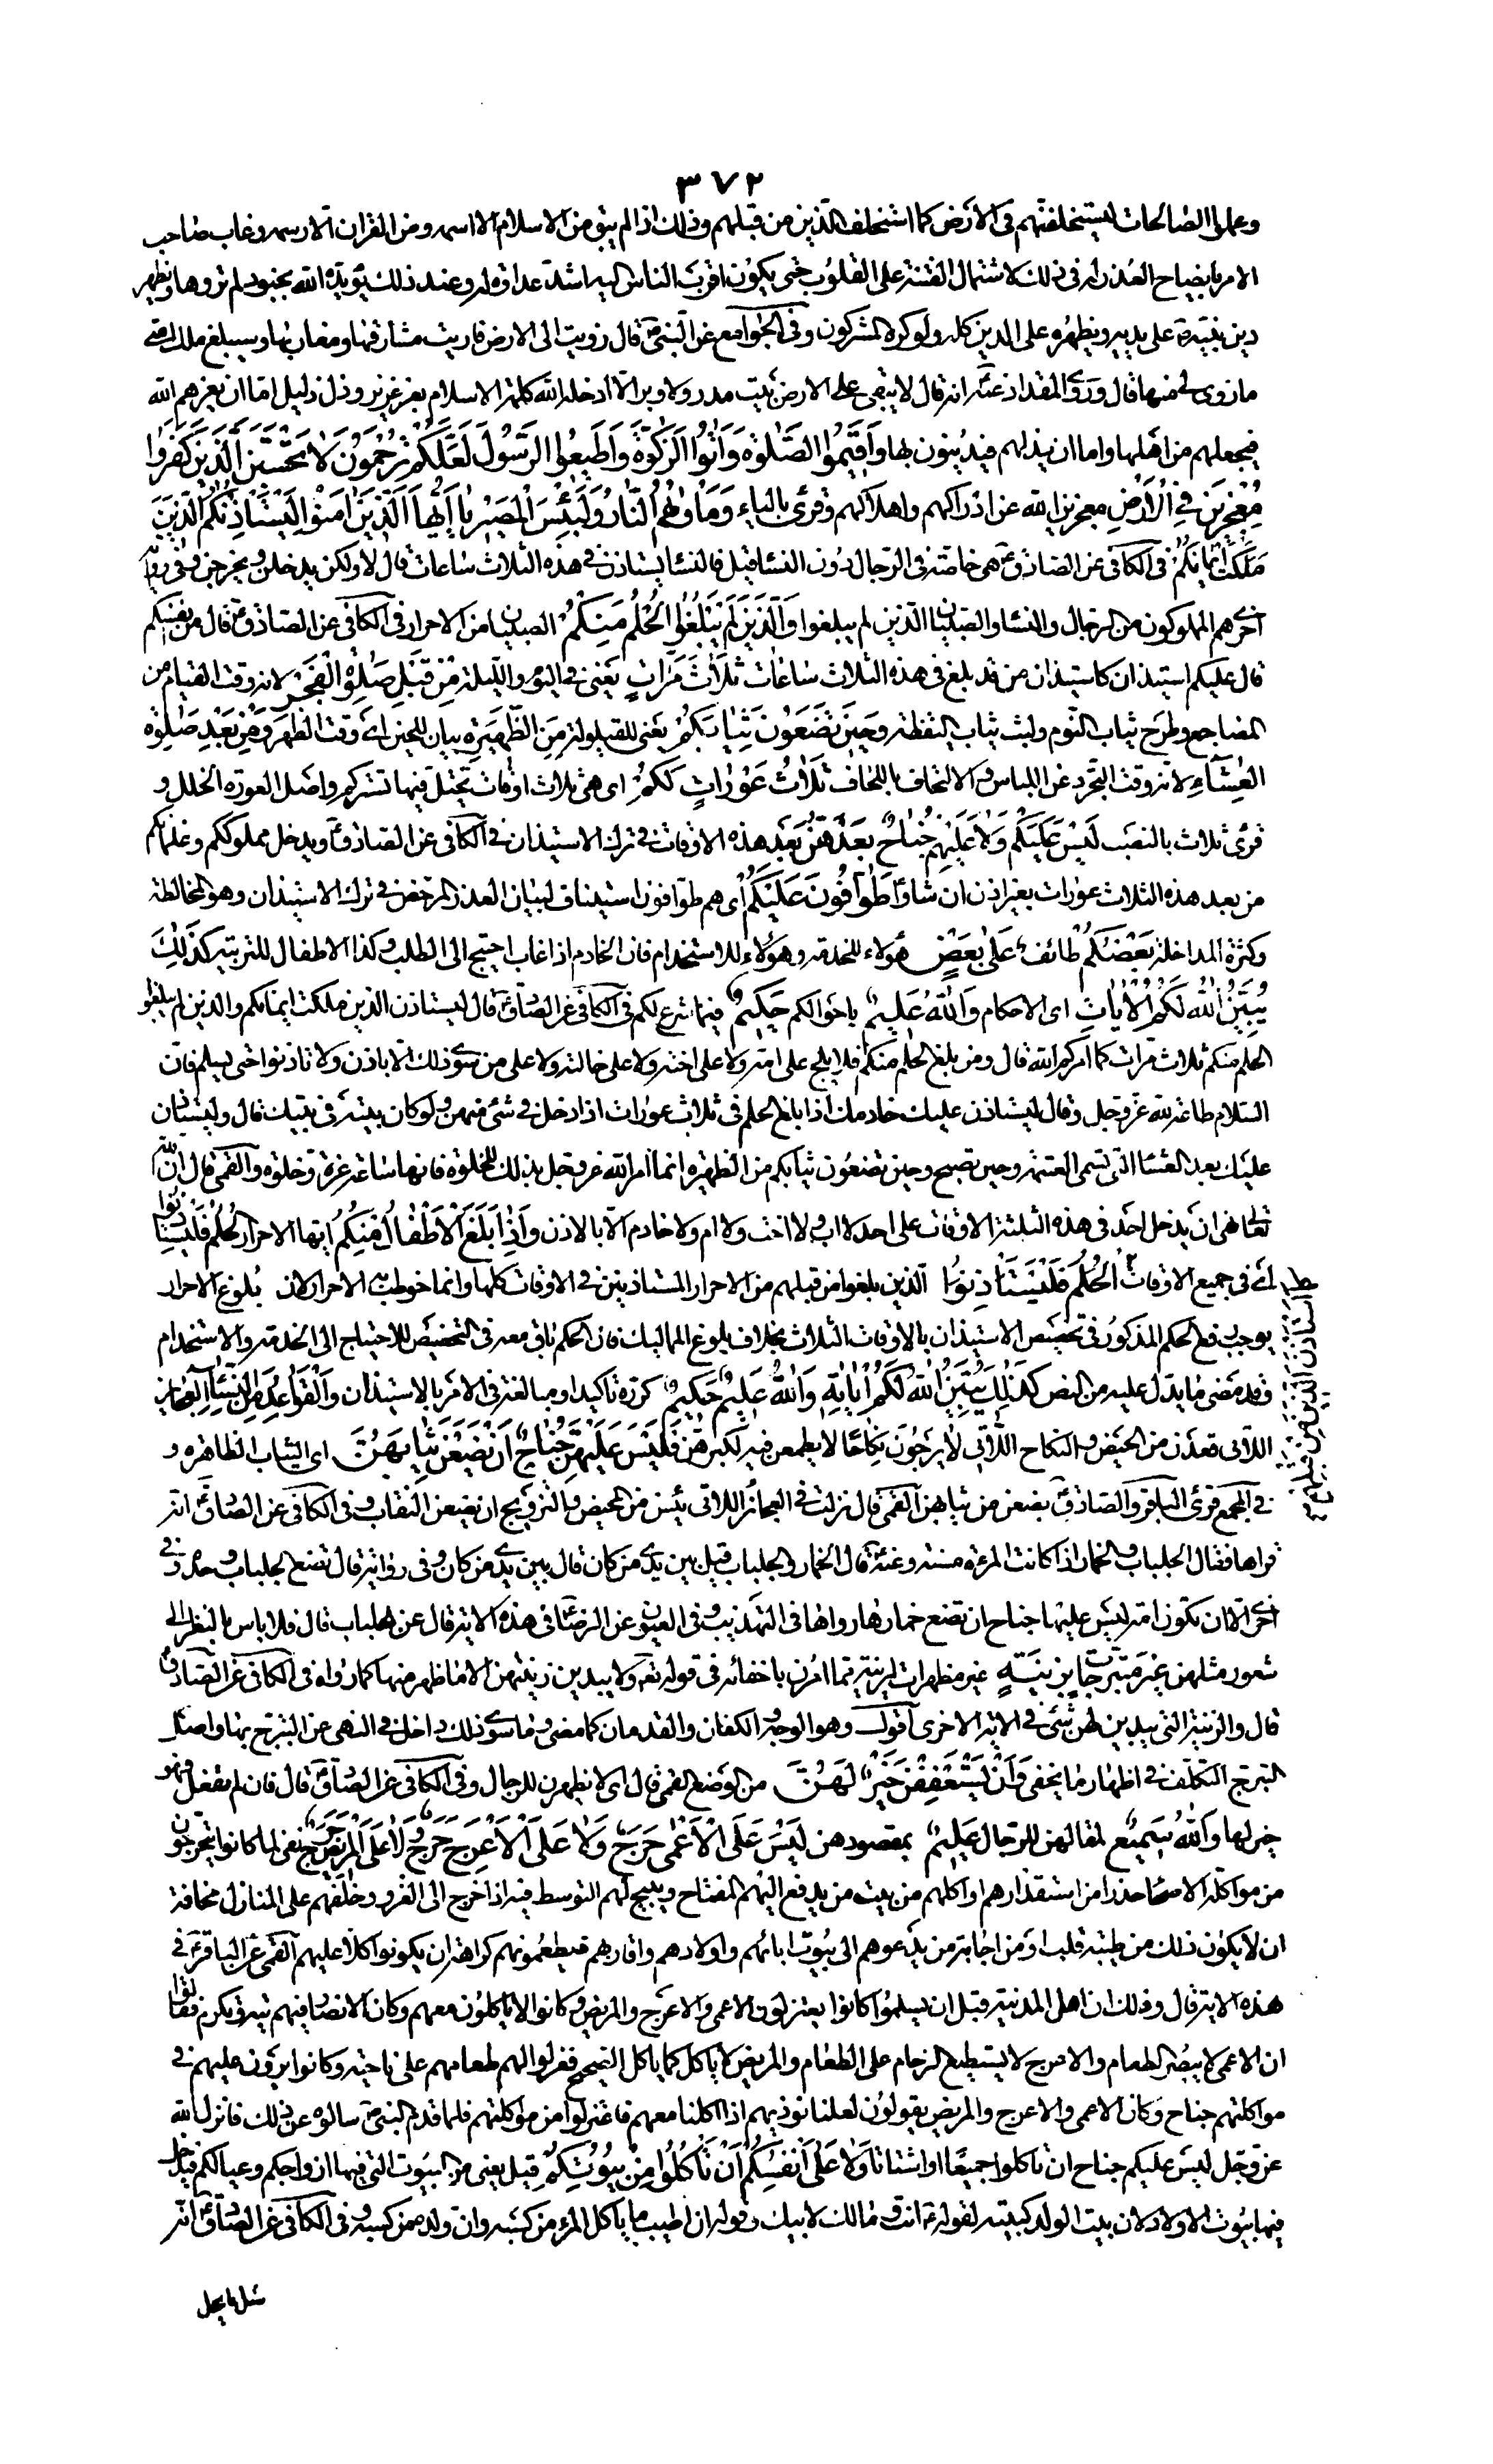 ٣٧٢
وعملوا الصالحات ليستخلفنهم فى الارض كما استخلف الذين من قبلهم وذلك اذا لم يبق من الاسلام الا اسمه ومن القران الا رسمه وغاب صاحب
الامر بايضاح العذر له فى ذلك لاشتمال الفتنة على القلوب حتى يكون اقرب الناس اليه اشد عداوة له وعند ذلك يؤيده الله بجنود لم تروها ويظهر
دين نبيه على يديه ويظهره على الدين كله ولو كره المشركون وفى الجوامع عن النبى ص قال زويت لى الارض فاريت مشارقها ومغاربها وسيبلغ ملك امتى
ما زوى لى منها قال وروى المقداد عنه ص انه قال لا يبقى على الارض بيت مدر ولا وبر الا ادخله الله كلمة الاسلام بعز عزيز وذل ذليل اما ان يعزهم الله
فيجعلهم من اهلها واما ان يذلهم فيدينون بها وَاَقِيمُوا الصَّلٰوةَ وَاٰتُوا الزَّكٰوةَ وَاَطِيعُوا الرَّسُولَ لَعَلَّكُمْ تُرْحَمُونَ لَا تَحْسَبَنَّ الَّذِينَ كَفَرُوا
مُعْجِزِينَ فِى الْاَرْضِ معجزين الله عن ادراكهم واهلاكهم وقرئ بالياء وَمَاْوٰيهُمُ النَّارُ وَلَبِئْسَ الْمَصِيرُ يٰا اَيُّهَا الَّذِينَ اٰمَنُوا لِيَسْتَاْذِنْكُمُ الَّذِينَ
مَلَكَتْ اَيْمَانُكُمْ فى الكافى عن الصادق ع هى خاصة فى الرجال دون النساء قيل فالنساء يستاذن فى هذه الثلاث ساعات قال لا ولكن يدخلن ويخرجن وفى رواية
اخرى هم المملوكون من الرجال والنساء والصبيان الذين لم يبلغوا وَالَّذِينَ لَمْ يَبْلُغُوا الْحُلُمَ مِنْكُمْ الصبيان من الاحرار فى الكافى عن الصادق ع قال من انفسكم
قال عليكم استيذان كاستيذان من قد بلغ فى هذه الثلاث ساعات ثَلٰثَ مَرّٰاتٍ يعنى فى اليوم والليلة مِنْ قَبْلِ صَلٰوةِ الْفَجْرِ لانه وقت القيام من
المضاجع وطرح ثياب النوم ولبث ثياب اليقظة وَحِينَ تَضَعُونَ ثِيٰابَكُمْ يعنى للقيلولة مِنَ الظَّهِيرَةِ بيان للحين اى وقت الظهر وَمِنْ بَعْدِ صَلٰوةِ
الْعِشٰاءِ لانه وقت التجرد عن اللباس والالتحاف باللحاف ثَلٰثُ عَوْرٰاتٍ لَكُمْ اى هى ثلاث اوقات يختل فيها تستركم واصل العورة الخلل و
قرئ ثلاث بالنصب لَيْسَ عَلَيْكُمْ وَلَا عَلَيْهِمْ جُنٰاحٌ بَعْدَهُنَّ بعد هذه الاوقات فى ترك الاستيذان فى الكافى عن الصادق ع ويدخل مملوككم وغلمانكم
من بعد هذه الثلاث عورات بغير اذن ان شاؤا طَوّٰافُونَ عَلَيْكُمْ اى هم طوافون استيناف لبيان العذر المرخص فى ترك الاستيذان وهو المخالطة
وكثرة المداخلة بَعْضُكُمْ طائف عَلٰى بَعْضٍ هؤلاء للخدمة وهؤلاء للاستخدام فان الخادم اذا غاب احتيج الى الطلب وكذا الاطفال للتربية كَذٰلِكَ
يُبَيِّنُ اللهُ لَكُمُ الْاٰيٰاتِ اى الاحكام وَاللهُ عَلِيمٌ باحوالكم حَكِيمٌ فيما شرع لكم فى الكافى عن الصادق ع قال ليستاذن الذين ملكت ايمانكم والذين لم يبلغوا
الحلم منكم ثلاث مرات كما امركم الله قال ومن بلغ الحلم منكم فلا يلج على امه ولا على اخته ولا على خالته ولا على من سوى ذلك الا باذن ولا تاذنوا حتى يسلم فان
السلام طاعة لله عز وجل وقال ليستاذن عليك خادمك اذا بلغ الحلم فى ثلاث عورات اذا دخل فى شئ منهن ولو كان بيته فى بيتك قال وليستاذن
عليك بعد العشاء التى تسمى العتمة وحين تصبح وحين تضعون ثيابكم من الظهيرة انما امر الله عز وجل بذلك للخلوة فانها ساعة غرة وخلوة والقمى قال ان الله
تعالى نهى ان يدخل احد فى هذه الثلثة الاوقات على احد لا اب ولا اخت ولا ام ولا خادم الا بالاذن وَاِذٰا بَلَغَ الْاَطْفٰالُ مِنْكُمُ ايها الاحرار الْحُلُمَ فَلْيَسْتَاْذِنُوا
اى فى جميع الاوقات الْحُلُمَ فَلْيَسْتَاْذِنُوا الذين بلغوا من قبلهم من الاحرار المستاذنين فى الاوقات كلها وانما خوطب به الاحرار لان بلوغ الاحرار
يوجب رفع الحكم المذكور فى تخصيص الاستيذان بالاوقات الثلاث بخلاف بلوغ المماليك فان الحكم باق معه فى التخصيص للاحتياج الى الخدمة والاستخدام
وقد مضى ما يدل عليه من النص كَذٰلِكَ يُبَيِّنُ اللهُ لَكُمْ اٰيٰاتِهِ وَاللهُ عَلِيمٌ حَكِيمٌ كرره تاكيدا ومبالغة فى الامر بالاستيذان وَالْقَوٰاعِدُ مِنَ النِّسٰاءِ العجايز
اللاتى قعدن من الحيض والنكاح اللّٰاتِى لٰا يَرْجُونَ نِكٰاحًا لا يطمعن فيه لكبرهن فَلَيْسَ عَلَيْهِنَّ جُنٰاحٌ اَنْ يَضَعْنَ ثِيٰابَهُنَّ اى الثياب الظاهرة و
فى المجمع قرئ الباقر والصادق ع يضعن من ثيابهن القمى قال نزلت فى العجائز اللاتى يئسن من المحيض والتزويج ان يضعن النقاب وفى الكافى عن الصادق ع انه
قراها فقال الجلباب والخمار اذا كانت المرءة مسنة وعنه ع قال الخمار والجلباب قيل بين يدى من كان قال بين يدى من كان وفى رواية قال تضع الجلباب وحده وفى
اخرى الا ان تكون امة ليس عليها جناح ان تضع خمارها رواها فى التهذيب وفى العيون عن الرضا ع فى هذه الاية قال عن الجلباب قال فلا باس بالنظر الى
شعور مثلهن غَيْرَ مُتَبَرِّجٰاتٍ بِزِينَةٍ غير مظهرات لزينة مما امرن باخفائه فى قوله تعه ولا يبدين زينتهن الا ما ظهر منها كما رواه فى الكافى عن الصادق ع
قال والزينة التى يبدين لهن شئ فى الاية الاخرى اقول وهو الوجه والكفان والقدمان كما مضى وما سوى ذلك داخل فى النهى عن التبرج بها واصل
التبرج التكلف فى اظهار ما يخفى وَاَنْ يَسْتَعْفِفْنَ خَيْرٌ لَهُنَّ من الوضع القمى قال اى لا يظهرن للرجال وفى الكافى عن الصادق ع قال فان لم تفعل فهو
خير لها وَاللهُ سَمِيعٌ لمقالهن للرجال عَلِيمٌ بمقصودهن لَيْسَ عَلَى الْاَعْمٰى حَرَجٌ وَلٰا عَلَى الْاَعْرَجِ حَرَجٌ وَلٰا عَلَى الْمَرِيضِ حَرَجٌ نفى لما كانوا يتحرجون
من مواكلة الاصحاء حذرا من استقذارهم او اكلهم من بيت من يدفع اليهم المفتاح ويبيح لهم التوسط فيه اذا خرج الى الغزو وخلفهم على المنازل مخافة
ان لا يكون ذلك من طيبة قلب او من اجابة من يدعوهم الى بيوت ابائهم واولادهم واقاربهم فيطعمونهم كراهة ان يكونوا كلا عليهم القمى عن الباقر ع فى
هذه الاية قال وذلك ان اهل المدينة قبل ان يسلموا كانوا يعتزلون الاعمى والاعرج والمريض وكانوا لا ياكلون معهم وكان الانصار فيهم تيه وتكرم فقالوا
ان الاعمى لا يبصر الطعام والاعرج لا يستطيع الزحام على الطعام والمريض لا ياكل كما ياكل الصحيح فعزلوا لهم طعامهم على ناحية وكانوا يرون عليهم فى
مواكلتهم جناح وكان الاعمى والاعرج والمريض يقولون لعلنا نوذيهم اذا اكلنا معهم فاعتزلوا من مواكلتهم فلما قدم النبى ص سالوه عن ذلك فانزل الله
عز وجل ليس عليكم جناح ان تاكلوا جميعا او اشتاتا وَلٰا عَلٰى اَنْفُسِكُمْ اَنْ تَاْكُلُوا مِنْ بُيُوتِكُمْ قيل يعنى من البيوت التى فيها ازواجكم وعيالكم فيدخل
فيها بيوت الاولاد لان بيت الولد كبيته لقوله ع انت ومالك لابيك وقوله ان اطيب ما ياكل المرء من كسبه وان ولده من كسبه وفى الكافى عن الصادق ع انه
كما استاذن الذين من قبلهم
سئل ما يحل